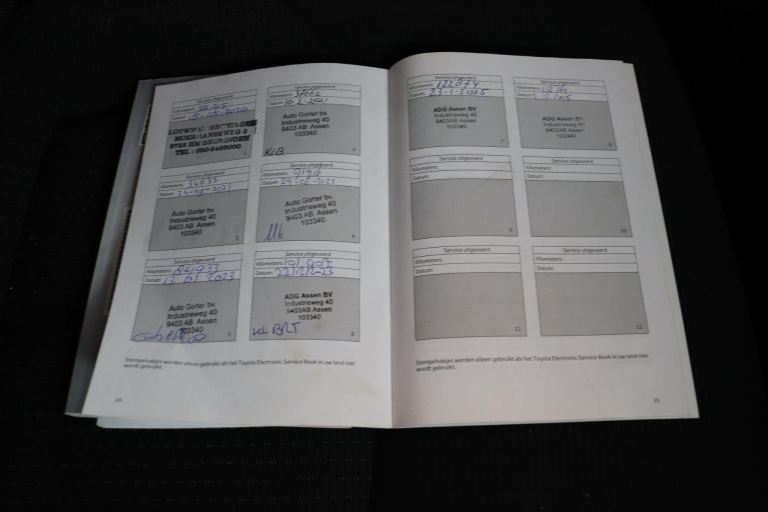 Service uitgevoerd
Kilometers:
Datum:
MOERLANSEWEG 5
TEL : 050-5495000
1
Service uitgevoerd
Kilometers:
Datum: 10-2-2021
Auto Gorter bv.
Industrieweg 40
9403 AB Assen
103340
KLB
2
Service uitgevoerd
Kilometers:
Datum:
Auto Gorter bv.
Industrieweg 40
9403 AB Assen
103340
3
Service uitgevoerd
Kilometers:
Datum:
Auto Gorter bv.
Industrieweg 40
9403 AB Assen
103340
4
Service uitgevoerd
Kilometers:
Datum:
Auto Gorter bv.
Industrieweg 40
9403 AB Assen
103340
5
Service uitgevoerd
Kilometers:
Datum:
ADG Assen BV
Industrieweg 40
9403AB Assen
103340
6
Stempelvakjes worden alleen gebruikt als het Toyota Electronic Service Book in uw land niet
wordt gebruikt.
24
Service uitgevoerd
Kilometers:
Datum: 23-1-2025
ADG Assen BV
Industrieweg 40
9403AB Assen
103340
7
Service uitgevoerd
Kilometers:
Datum:
ADG Assen BV
Industrieweg 40
9403AB Assen
103340
8
Service uitgevoerd
Kilometers:
Datum:
9
Service uitgevoerd
Kilometers:
Datum:
10
Service uitgevoerd
Kilometers:
Datum:
11
Service uitgevoerd
Kilometers:
Datum:
12
Stempelvakjes worden alleen gebruikt als het Toyota Electronic Service Book in uw land niet
wordt gebruikt.
25